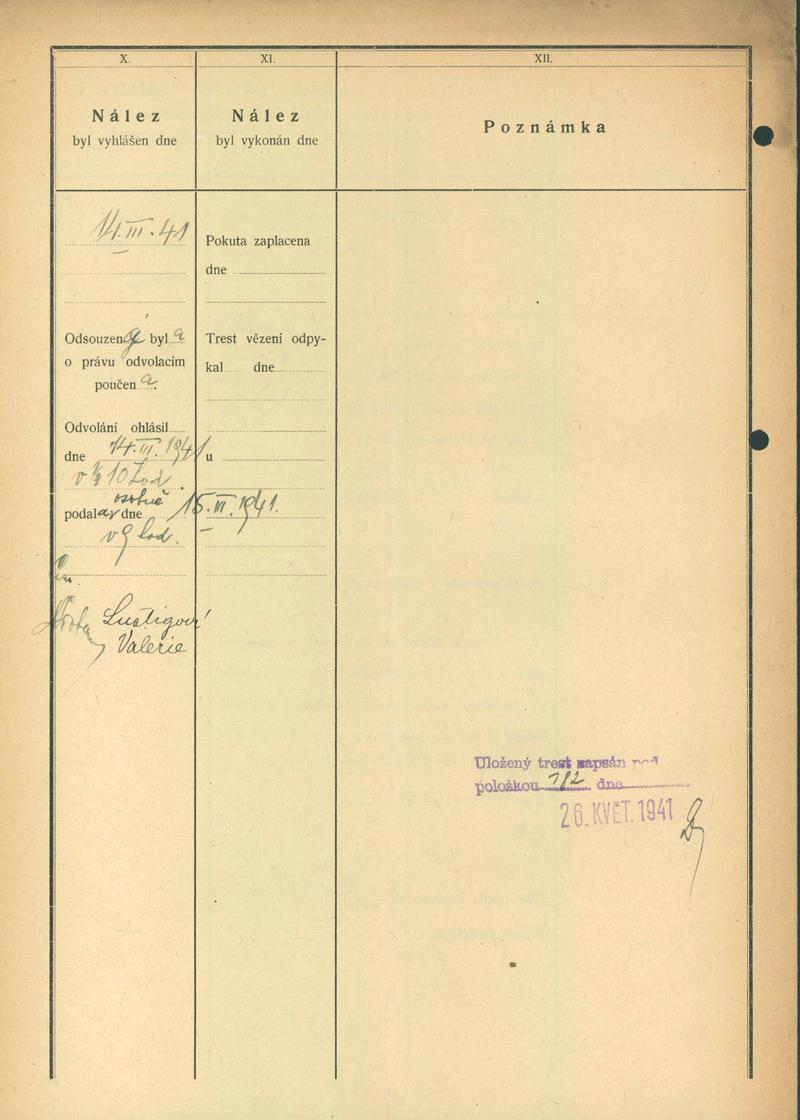 X.
Nález
byl vyhlášen dne
14.III.41
Odsouzen byl a
o právu odvolacím
poučen a.
Odvolání ohlásil
dne 14.III.1941
v ½10 hod.
osobně
podala dne 15.III.1941.
v 9 hod.
Lustigová
Valerie
XI.
Nález
byl vykonán dne
Pokuta zaplacena
dne
Trest vězení odpy-
kal dne
u
XII.
Poznámka
Uložený trest zapsán pod
položkou 182 dne
26. KVĚT. 1941